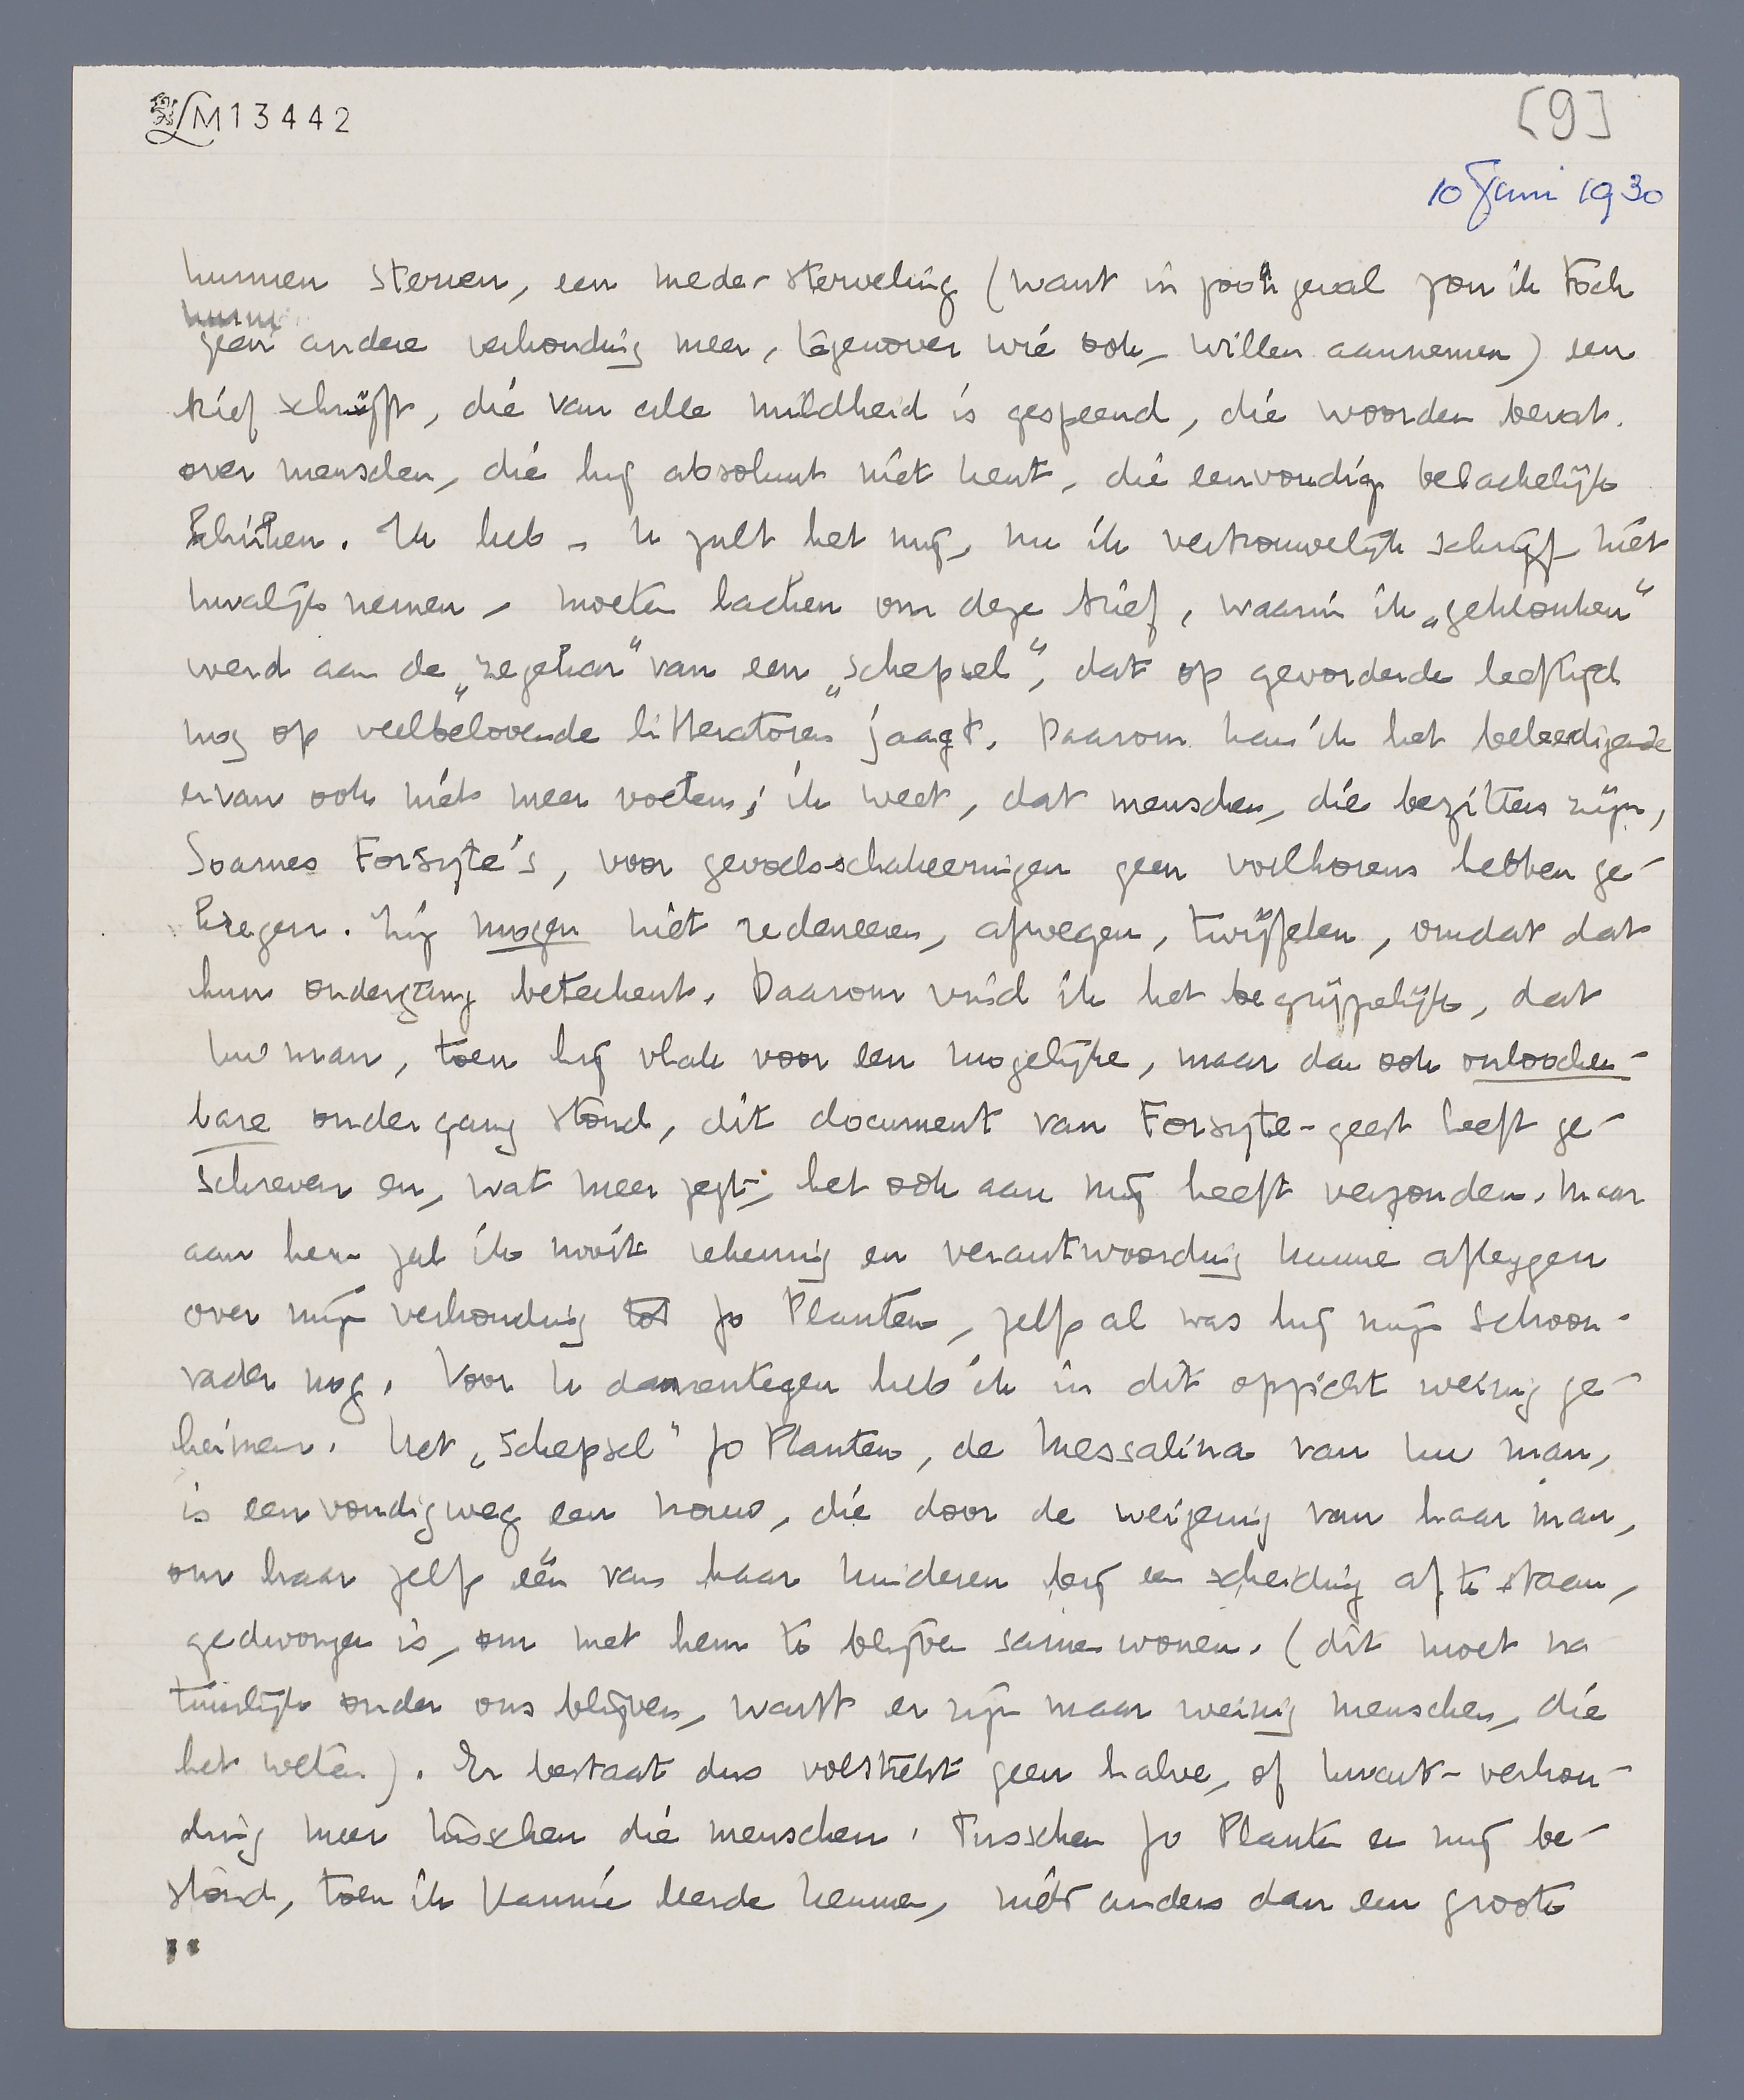 LM13442
[9]
10 Juni 1930
kunnen sterven, een mede-sterveling (want in zoo'n geval zou ik toch
geen andere verhouding meer, tegenover wie ook, willen aannemen) een
brief schrijft, die van alle mildheid is gespeend, die woorden bevat
over menschen, die hij absoluut niet kent, die eenvoudig belachelijk
klinken. Ik heb – U zult het mij, nu ik vertrouwelijk schrijf niet
kwalijk nemen – moeten lachen om deze brief, waarin ik „geklonken"
werd aan de „zegekar" van een „schepsel", dat op gevorderde leeftijd
nog op veelbelovende litteratoren jaagt. Daarom kan ik het beleedigende
ervan ook niet meer voelen; ik weet, dat menschen, die bezitters zijn,
Soames Forsyte's, voor gevoels-schakeeringen geen voelhorens hebben ge-
kregen. Zij mogen niet redeneeren, afwegen, twijfelen, omdat dat
hun ondergang beteekent. Daarom vind ik het begrijpelijk, dat
Uw man, toen hij vlak voor een mogelijke, maar dan ook onloochen-
bare ondergang stond, dit document van Forsyte-geest heeft ge-
schreven en, wat meer zegt, het ook aan mij heeft verzonden. Maar
aan hem zal ik nooit rekening en verantwoording kunnen afleggen
over mijn verhouding tot Jo Planten, zelfs al was hij mijn schoon-
vader nog. Voor U daarentegen heb ik in dit opzicht weinig ge-
heimen. Het „schepsel" Jo Planten, de Messalina van Uw man,
is eenvoudigweg een vrouw, die door de weigering van haar man,
om haar zelfs één van haar kinderen bij een scheiding af te staan,
gedwongen is, om met hem te blijven samenwonen. (dit moet na
tuurlijk onder ons blijven, want er zijn maar weinig menschen, die
het weten). Er bestaat dus volstrekt geen halve, of kwart-verhou-
ding meer tusschen die menschen. Tusschen Jo Planten en mij be-
stond, toen ik Hannie leerde kennen, niet anders dan een groote